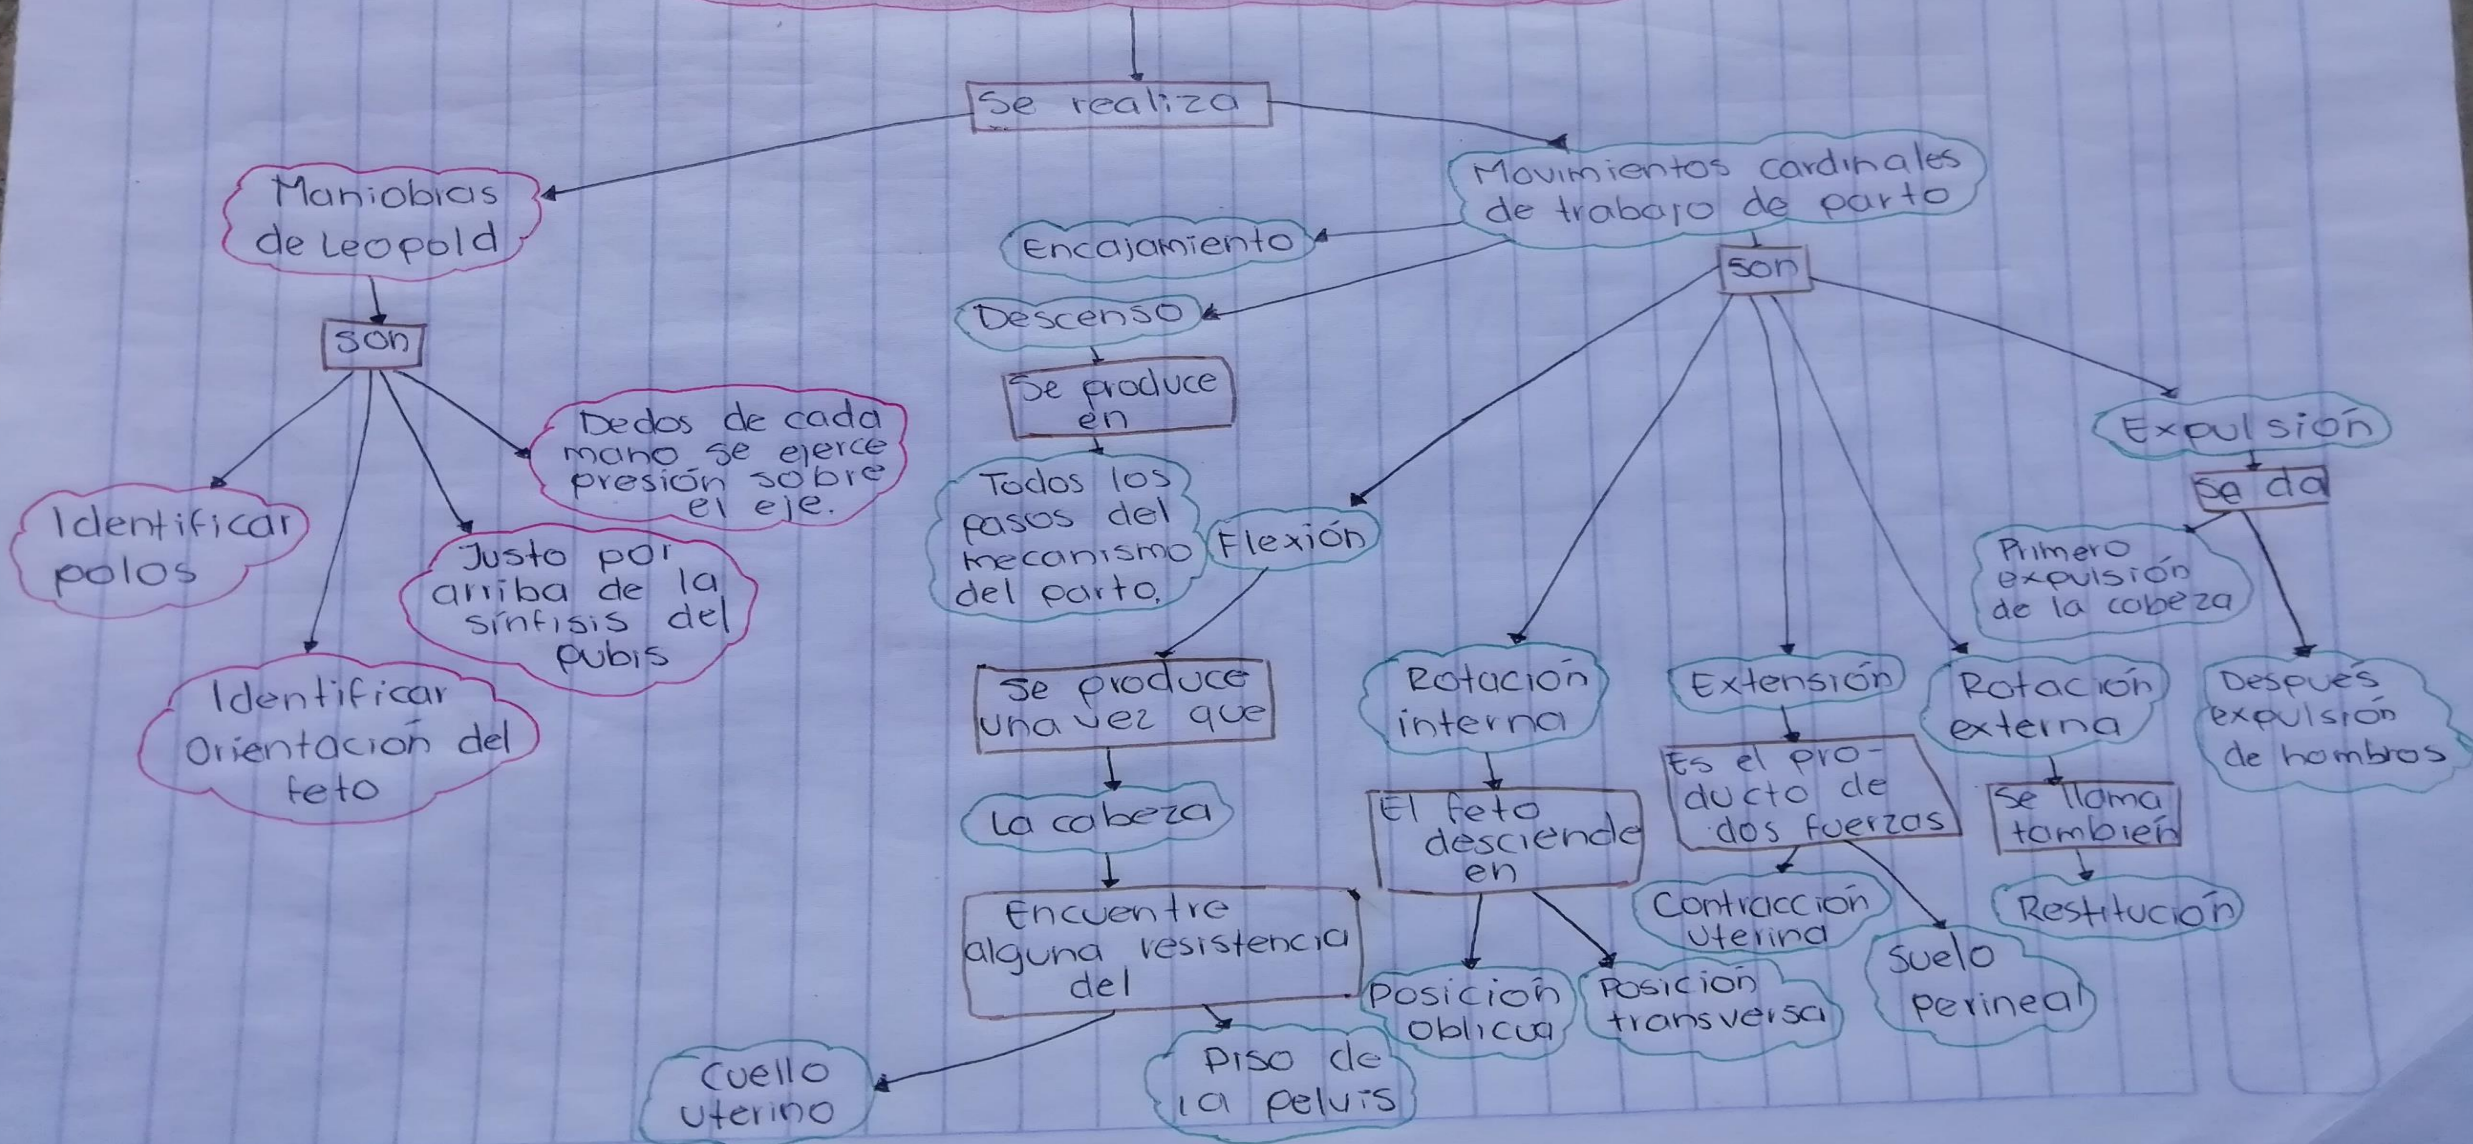 Se realiza
Maniobras
de Leopold
son
Identificar
polos
Identificar
Orientación del
feto
Justo por
arriba de la
sínfisis del
pubis
Dedos de cada
mano se ejerce
presión sobre
el eje.
Movimientos cardinales
de trabajo de parto
Encajamiento
Descenso
Se produce
en
Todos los
pasos del
mecanismo
del parto.
son
Flexión
Se produce
una vez que
La cabeza
Encuentre
alguna resistencia
del
Cuello
uterino
Piso de
la pelvis
Rotación
interna
El feto
desciende
en
Posición
oblicua
Posición
transversa
Extensión
Es el pro-
ducto de
dos fuerzas
Contracción
uterina
Suelo
perineal
Rotación
externa
Se llama
también
Restitución
Expulsión
Se da
Primero
expulsión
de la cabeza
Después
expulsión
de hombros